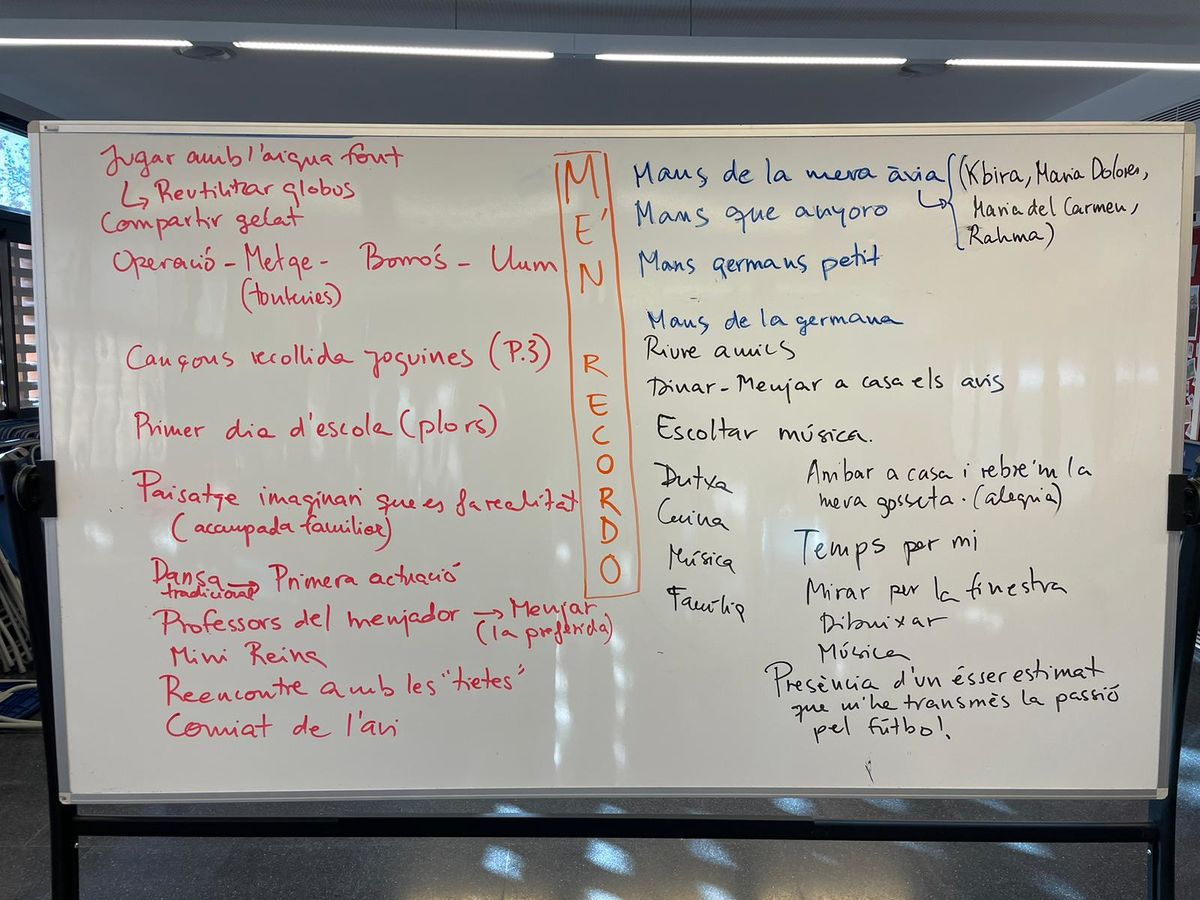 Jugar amb l'aigua font
↳ Reutilitzar globus
Compartir gelat
Operació - Metge - Borrós - Llum
(tonteries)
Cançons recollida joguines (P.3)
Primer dia d'escola (plors)
Paisatge imaginari que es fa realitat
(acampada familiar)
Dansa → Primera actuació
tradicional
Professors del menjador → Menjar
(la preferida)
Mini Reina
Reencontre amb les "tietes"
Comiat de l'avi
M'EN RECORDO
Mans de la meva àvia → (Kbira, Maria Dolores,
Maria del Carmen,
Rahma)
Mans que anyoro
Mans germans petit
Mans de la germana
Riure amics
Dinar - Menjar a casa els avis
Escoltar música.
Dutxa
Cuina
Música
Família
Arribar a casa i rebre'm la
meva gosseta. (alegria)
Temps per mi
Mirar per la finestra
Dibuixar
Música
Presència d'un ésser estimat
que m'he transmès la passió
pel fútbol.